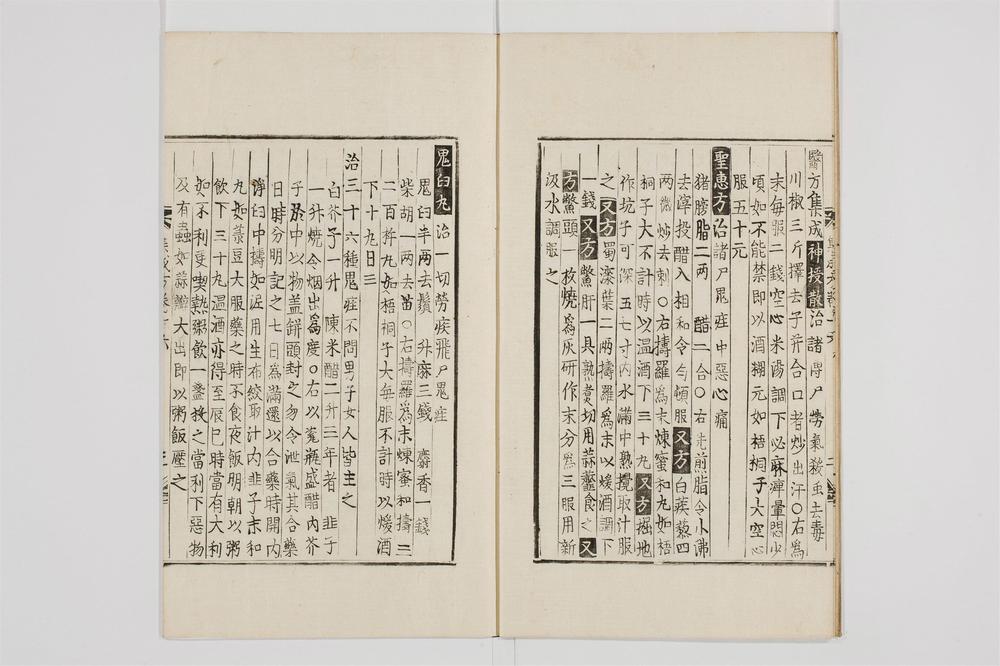 醫方集成神授散治諸傳尸勞氣殺虫去毒
川椒三斤擇去子并合口者炒出汗○右爲
末每服二錢空心米湯調下必麻痺暈悶少
頃如不能禁即以酒糊元如梧桐子大空心
服五十元
聖惠方治諸尸鬼疰中惡心痛
猪膀脂二兩 醋二合○右先煎脂令小沸
去滓投醋入相和令勻頓服又方白蒺藜四
兩微炒去刺○右擣羅爲末煉蜜和丸如梧
桐子大不計時以温酒下三十丸又方掘地
作坑子可深五七寸內水滿中熟攪取汁服
之又方蜀漆葉二兩擣羅爲末以煖酒調下
一錢又方鱉肝一具熟煑切用蒜虀食之又
方鱉頭一枚燒爲灰研作末分爲三服用新
汲水調服之
鬼臼丸治一切勞疾飛尸鬼疰
鬼臼半兩去鬚 升麻三錢 麝香一錢
柴胡一兩去苗○右擣羅爲末煉蜜和擣三
二百杵丸如梧桐子大每服不計時以煖酒
下十丸日三
治三十六種鬼疰不問男子女人皆主之
白芥子一升 陳米醋二升三年者 韭子
一升燒令烟出爲度○右以瓷瓶盛醋內芥
子於中以物盖缾頭封之勿令泄氣其合藥
日時分明記之七日爲滿還以合藥時開內
淨臼中擣如泥用生布絞取汁內韭子末和
丸如菉豆大服藥之時不食夜飯明朝以粥
飲下三十丸温酒亦得至辰巳時當有大利
如不利更喫熱粥飲一盞投之當利下惡物
及有蟲如蒜瓣大出即以粥飯壓之